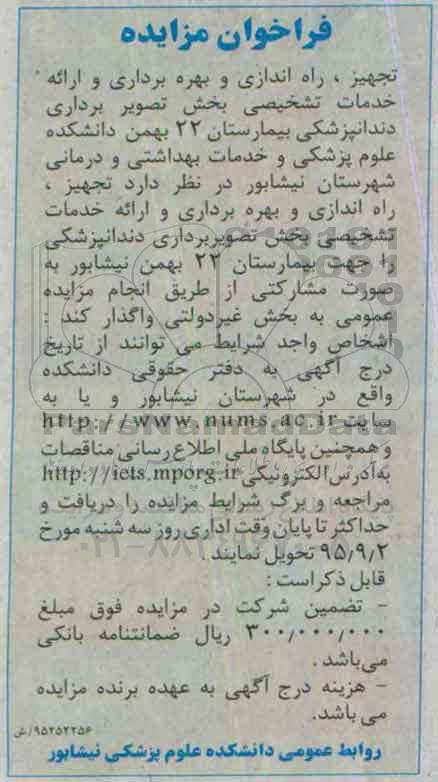 فراخوان مزایده
تجهیز ، راه اندازی و بهره برداری و ارائه
خدمات تشخیصی بخش تصویر برداری
دندانپزشکی بیمارستان ۲۲ بهمن دانشکده
علوم پزشکی و خدمات بهداشتی و درمانی
شهرستان نیشابور در نظر دارد تجهیز ،
راه اندازی و بهره برداری و ارائه خدمات
تشخیصی بخش تصویربرداری دندانپزشکی
را جهت بیمارستان ۲۲ بهمن نیشابور به
صورت مشارکتی از طریق انجام مزایده
عمومی به بخش غیردولتی واگذار کند :
اشخاص واجد شرایط می توانند از تاریخ
درج آگهی به دفتر حقوقی دانشکده
واقع در شهرستان نیشابور و یا به
سایت http://www.nums.ac.ir
و همچنین پایگاه ملی اطلاع رسانی مناقصات
به آدرس الکترونیکی http://iets.mporg.ir
مراجعه و برگ شرایط مزایده را دریافت و
حداکثر تا پایان وقت اداری روز سه شنبه مورخ
۹۵/۹/۲ تحویل نمایند .
قابل ذکر است :
- تضمین شرکت در مزایده فوق مبلغ
۳۰۰/۰۰۰/۰۰۰ ریال ضمانتنامه بانکی
می باشد .
- هزینه درج آگهی به عهده برنده مزایده
می باشد.
۹۵۲۵۲۲۵۶/ش
روابط عمومی دانشکده علوم پزشکی نیشابور
ParsNamadData